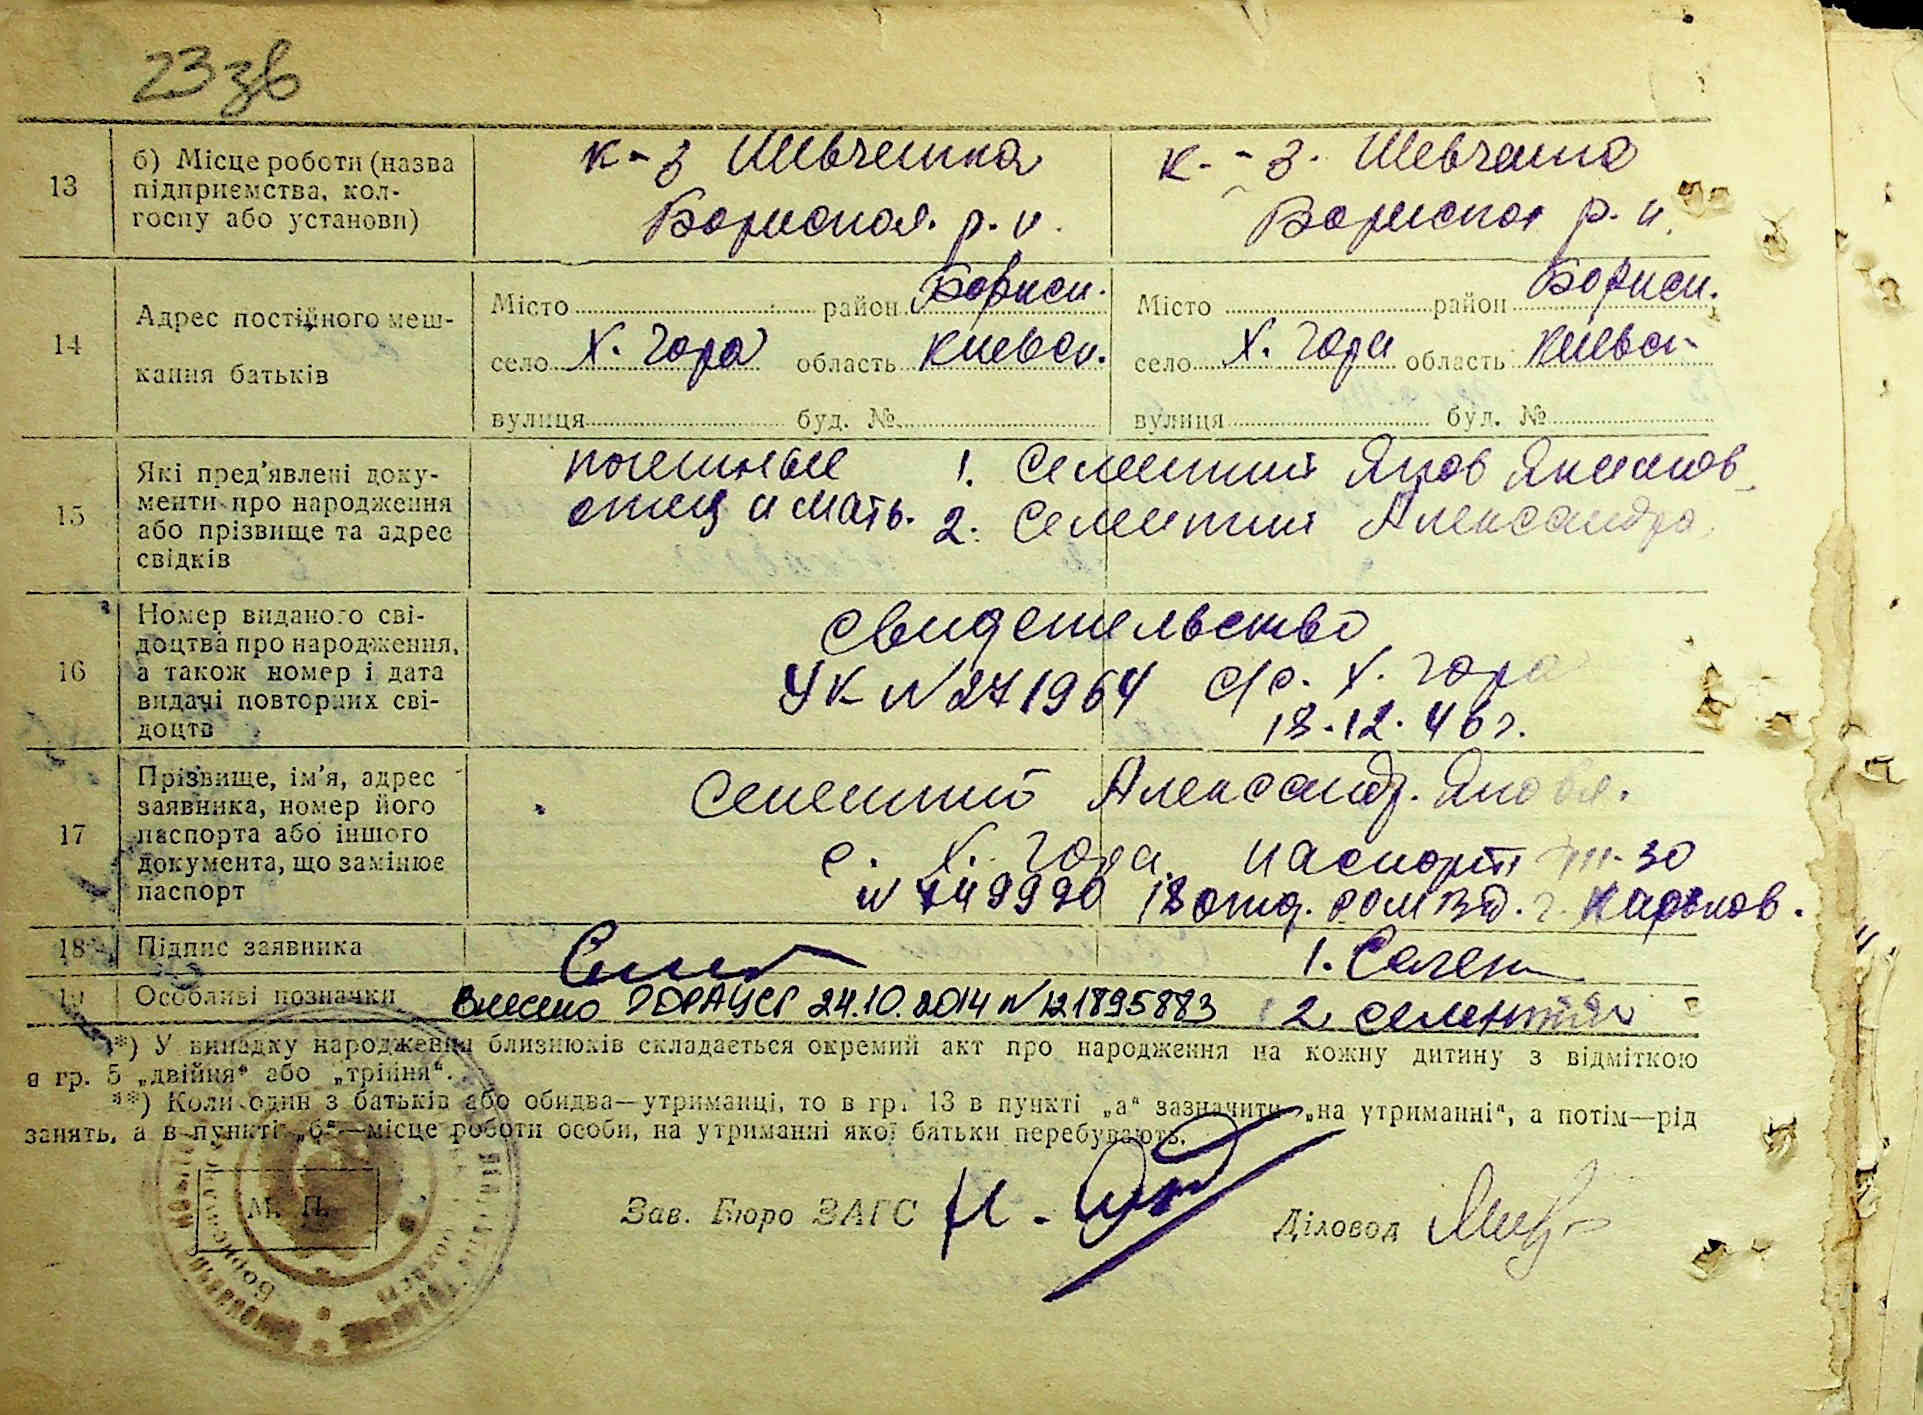 23 зв
13 б) Місце роботи (назва підприємства, колгоспу або установи)
к-з Шевченка к-з. Шевченка
Бориспол. р. н. Борисполь р. н.
14 Адрес постійного мешкання батьків
Місто район Борисп. Місто район Борисп.
село Х. Гора область Киевск. село Х. Гора область Киевск.
вулиця буд. № вулиця буд. №
15 Які пред'явлені документи про народження або прізвище та адрес свідків
1. Сементий Яков Якимов.
отец и мать. 2. Сементий Александра
16 Номер виданого свідоцтва про народження, а також номер і дата видачі повторних свідоцтв
свидетельство
УК № 271964 с/с. Х. Гора
18.12.46 г.
17 Прізвище, ім'я, адрес заявника, номер його паспорта або іншого документа, що замінює паспорт
Сементий Александр. Яковл.
с. Х. Гора. паспорт 30
№ 749990 18 отд. г. Харьков.
18 Підпис заявника 1. Семен
19 Особливі позначки Внесено ДРАЦСГ 24.10.2014 № 121895883 2. Сементий
*) У випадку народження близнюків складається окремий акт про народження на кожну дитину з відміткою
в гр. 5 „двійня“ або „трійня“.
**) Коли один з батьків або обидва—утриманці, то в гр. 13 в пункті „а“ зазначити „на утриманні“, а потім—рід
занять, а в пункті „б“—місце роботи особи, на утриманні якої батьки перебувають.
М. П. Зав. Бюро ЗАГС Діловод